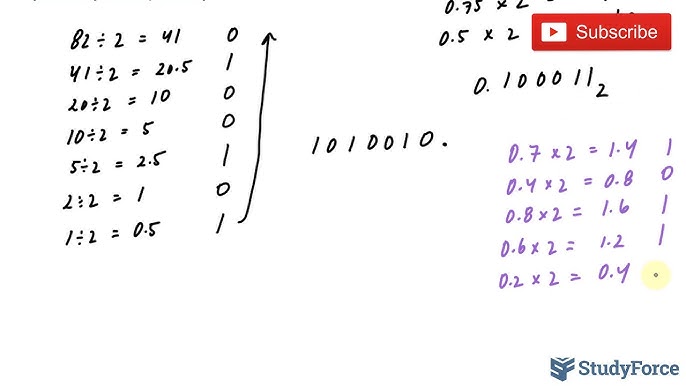 82 ÷ 2 = 41 0
41 ÷ 2 = 20.5 1
20 ÷ 2 = 10 0
10 ÷ 2 = 5 0
5 ÷ 2 = 2.5 1
2 ÷ 2 = 1 0
1 ÷ 2 = 0.5 1
1010010.
0.75 × 2
0.5 × 2
Subscribe
0.100011₂
0.7 × 2 = 1.4 1
0.4 × 2 = 0.8 0
0.8 × 2 = 1.6 1
0.6 × 2 = 1.2 1
0.2 × 2 = 0.4
StudyForce